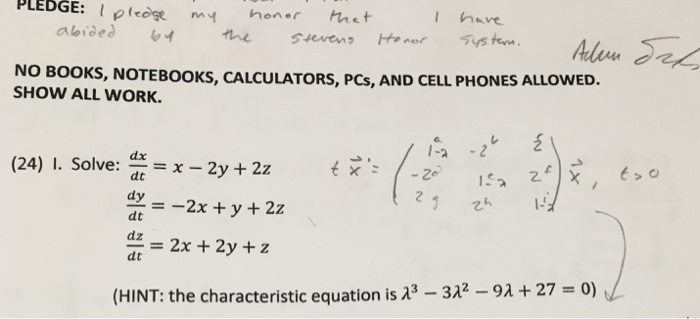 PLEDGE: I pledge my honor that I have
abided by the stevens Honor system.
NO BOOKS, NOTEBOOKS, CALCULATORS, PCs, AND CELL PHONES ALLOWED.
SHOW ALL WORK.
(24) I. Solve: dx/dt = x − 2y + 2z
dy/dt = −2x + y + 2z
dz/dt = 2x + 2y + z
t x⃗' = x⃗, t>0
(HINT: the characteristic equation is λ³ − 3λ² − 9λ + 27 = 0)